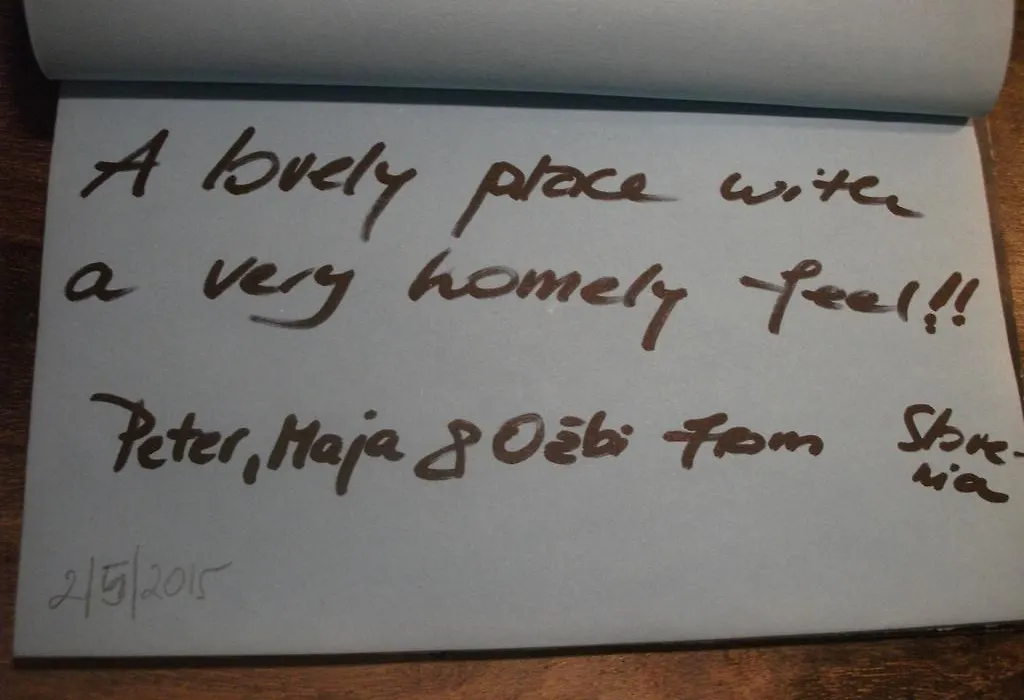 A lovely place with
a very homely feel!!
Peter, Maja & Ožbi from Slove-
nia
2/5/2015